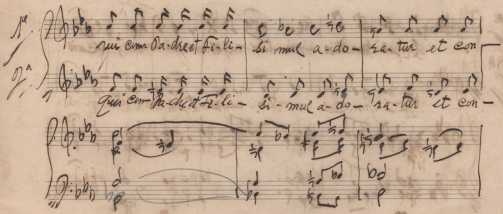 1ª qui cum Pa-dre et Fi-li- si mul a-do- ra-tur et con
2ª qui cum Pa-dre et Fi-li- si-mul a-do- ra-tur et con-